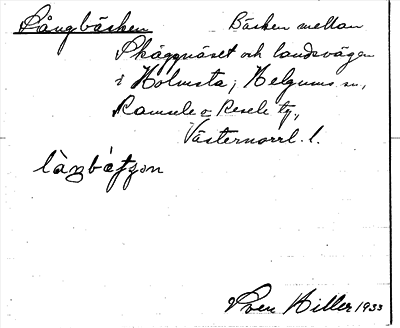 Långbäcken Bäcken mellan
Skäggnäset och landsvägen
i Holmsta; Helgums sn,
Ramsele o Resele tg,
Västernorrl. l.
Sven Hiller 1933